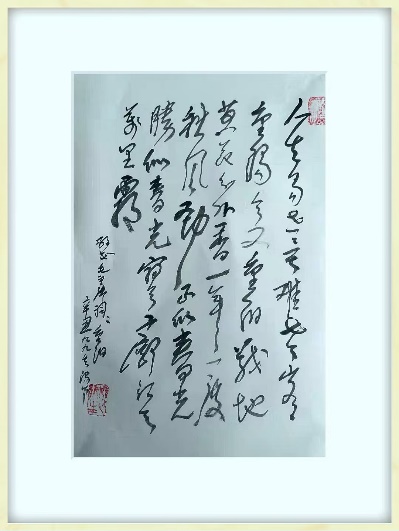 人生易老天難老岁岁
重陽今又重陽战地
黄花分外香一年一度
秋風劲不似春光
勝似春光寥廓江天
萬里霜
毛主席词重陽
辛丑九九